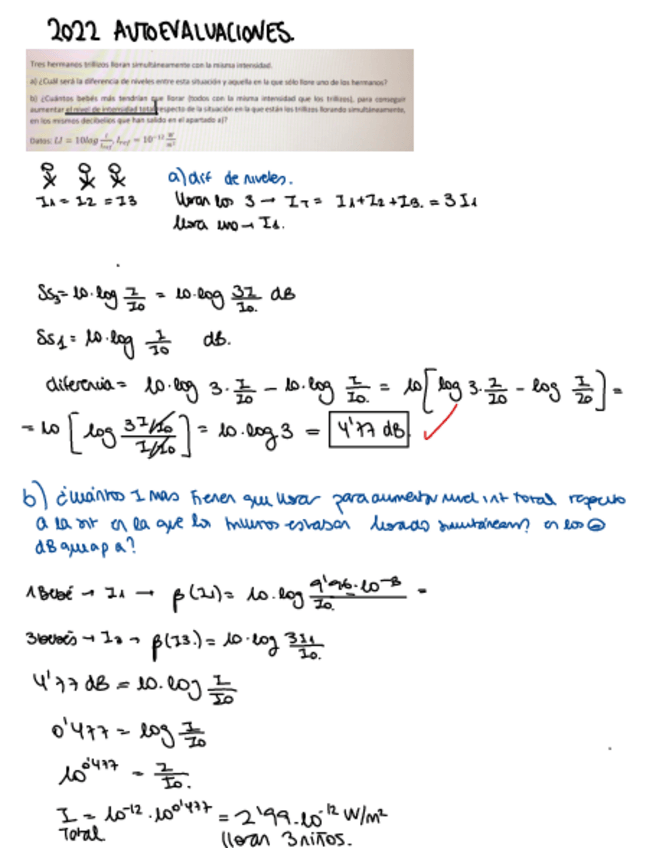 2022 AUTOEVALUACIONES.
Tres hermanos trillizos lloran simultáneamente con la misma intensidad.
a) ¿Cuál será la diferencia de niveles entre esta situación y aquella en la que sólo llore uno de los hermanos?
b) ¿Cuántos bebés más tendrían que llorar (todos con la misma intensidad que los trillizos), para conseguir
aumentar el nivel de intensidad total respecto de la situación en la que están los trillizos llorando simultáneamente,
en los mismos decibelios que han salido en el apartado a)?
Datos: LI = 10log I/I_ref, I_ref = 10^-12 W/m²
I1 = I2 = I3
a) dif de niveles.
lloran los 3 → IT = I1+I2+I3. = 3I1
llora uno → I1.
SS3 = 10·log I/I0 = 10·log 3I/I0. dB
SS1 = 10·log I/I0 dB.
diferencia = 10·log 3·I/I0 - 10·log I/I0. = 10[log 3·I/I0 - log I/I0] =
= 10 [log 3I/I0 / I/I0] = 10·log 3 = 4'77 dB
b) ¿Cuántos I mas tienen que llorar para aumentar nivel int total respecto
a la sit en la que los estaban llorado en los
dB que ap a?
1 Bebé → I1 → β(I1) = 10·log 9'96·10^-8/I0. =
3 bebés → I3 → β(I3.) = 10·log 3I1/I0.
4'77 dB = 10·log I/I0
0'477 = log I/I0
10^0'477 = I/I0.
I = 10^-12·10^0'477 = 2'99·10^-12 W/m²
Total lloran 3 niños.